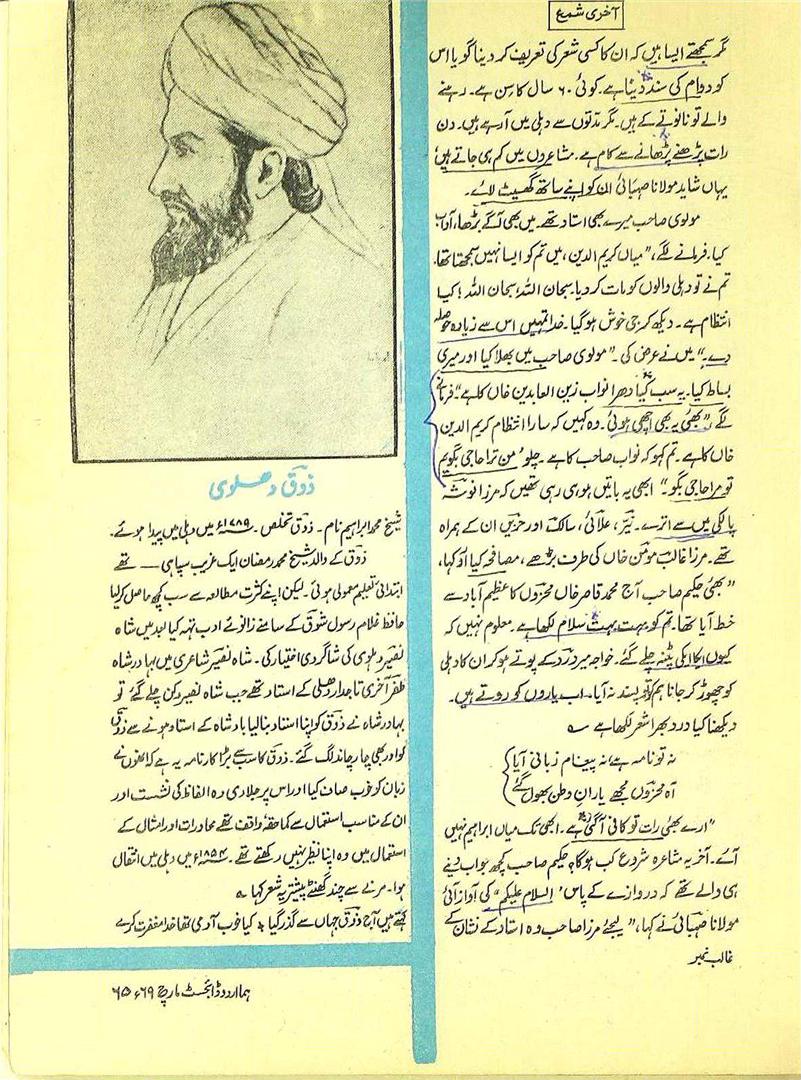 آخری شمع
مگر سمجھتے ایسا ہیں کہ ان کا کسی شعر کی تعریف کر دینا گویا اس
کو دوام کی سند دینا ہے۔ کوئی ۶۰ سال کا سن ہے۔ رہنے
والے تو نانوتے کے ہیں۔ مگر مدّتوں سے دہلی میں آ رہے ہیں۔ دن
رات پڑھنے پڑھانے سے کام ہے۔ مشاعروں میں کم ہی جاتے ہیں
یہاں شاید مولانا صہبائی ان کو اپنے ساتھ گھسیٹ لائے۔
مولوی صاحب میرے بھی استاد تھے۔ میں بھی آگے بڑھا، آداب
کیا۔ فرمانے لگے، ”میاں کریم الدین، میں تم کو ایسا نہیں سمجھتا تھا
تم نے تو دہلی والوں کو مات کر دیا۔ سبحان اللہ، سبحان اللہ! کیا
انتظام ہے۔ دیکھ کر جی خوش ہو گیا۔ خدا تمہیں اس سے زیادہ حوصلہ
دے۔“ میں نے عرض کی۔ ”مولوی صاحب میں بھلا کیا اور میری
بساط کیا۔ یہ سب کیا دھرا نواب زین العابدین خاں کا ہے“۔ فرمانے
لگے ”بھئی یہ بھی اچھی ہوئی۔ وہ کہیں کہ سارا انتظام کریم الدین
خاں کا ہے۔ تم کہو کہ نواب صاحب کا ہے۔ چلو ’من ترا حاجی بگویم
تو مرا حاجی بگو‘۔“ ابھی یہ باتیں ہو ہی رہی تھیں کہ مرزا نوشہ
پالکی میں سے اترے۔ نیّر، علائی، سالک اور حزیں ان کے ہمراہ
تھے۔ مرزا غالب مومن خاں کی طرف بڑھے، مصافحہ کیا اور کہا،
”بھئی حکیم صاحب آج محمد ناصر خاں محزوں کا عظیم آباد سے
خط آیا تھا۔ تم کو بہت بہت سلام لکھا ہے۔ معلوم نہیں کہ
کیوں ایکا ایکی پٹنہ چلے گئے۔ خواجہ میر درد کے پوتے ہو کر ان کا دہلی
کو چھوڑ کر جانا ہم کو تو پسند نہ آیا۔ اب یاروں کو روتے ہیں۔
دیکھنا کیا درد بھرا شعر لکھا ہے ؎
نہ تو نامہ ہے نہ پیغام زبانی آیا
آہ محزوں مجھے یارانِ وطن بھول گئے
”ارے بھئی رات تو کافی آ گئی ہے۔ ابھی تک میاں ابراہیم نہیں
آئے۔ آخر یہ مشاعرہ شروع کب ہوگا؟ حکیم صاحب کچھ جواب دینے
ہی والے تھے کہ دروازے کے پاس ’السلام علیکم‘ کی آواز آئی
مولانا صہبائی نے کہا، ”لیجئے مرزا صاحب وہ استاد کے نشان کے
غالب نمبر
ذوق دھلوی
شیخ محمد ابراہیم نام۔ ذوق تخلص۔ ۱۷۸۹ء میں دہلی میں پیدا ہوئے۔
ذوق کے والد شیخ محمد رمضان ایک غریب سپاہی — تھے
ابتدائی تعلیم معمولی ہوئی۔ لیکن اپنے کثرت مطالعہ سے سب کچھ حاصل کر لیا
حافظ غلام رسول شوق کے سامنے زانوئے ادب تہہ کیا بعد میں شاہ
نصیر دہلوی کی شاگردی اختیار کی۔ شاہ نصیر شاعری میں بہادر شاہ
ظفر آخری تاجدار دھلی کے استاد تھے جب شاہ نصیر دکن چلے گئے تو
بہادر شاہ نے ذوق کو اپنا استاد بنا لیا بادشاہ کے استاد ہونے سے ذوق
کو اور بھی چار چاند لگ گئے۔ ذوق کا سب سے بڑا کارنامہ یہ ہے کہ انھوں نے
زبان کو خوب صاف کیا اور اس پر جلا دی وہ الفاظ کی نشست اور
ان کے مناسب استعمال سے کما حقہ واقف تھے محاورات اور امثال کے
استعمال میں وہ اپنا نظیر نہیں رکھتے تھے۔ ۱۸۵۴ء میں دہلی میں انتقال
ہوا۔ مرنے سے چند گھنٹے پیشتر یہ شعر کہا ؎
کہتے ہیں آج ذوق جہاں سے گذر گیا ٭ کیا خوب آدمی تھا خدا مغفرت کرے
ہما اردو ڈائجسٹ مارچ ۶۹ء ۶۵